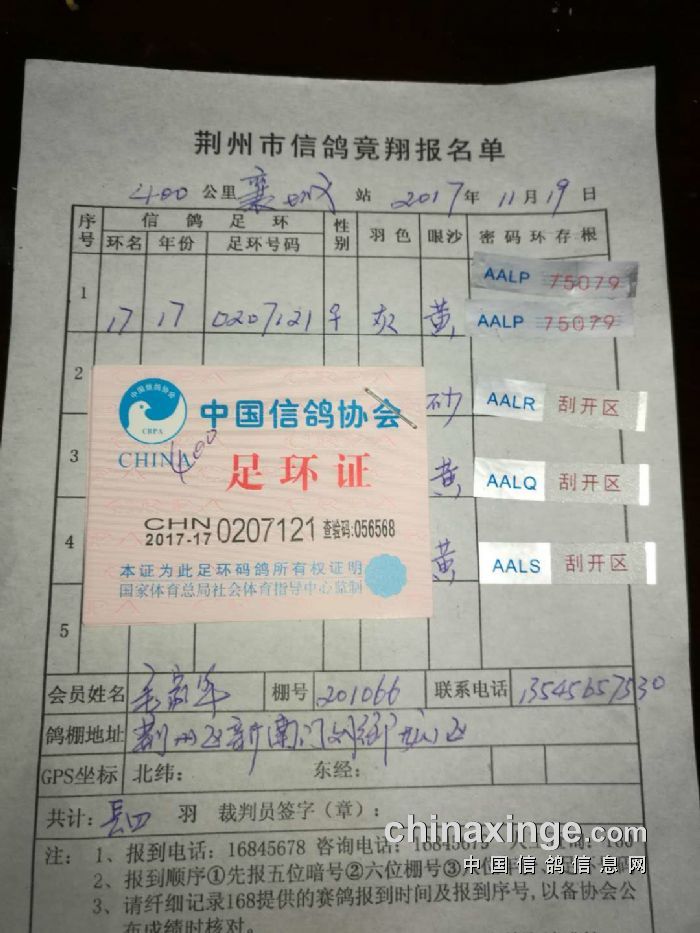 荆州市信鸽竟翔报名单
400 公里 襄城 站 2017 年 11 月 19 日
序号 信鸽足环 性别 羽色 眼沙 密码环存根
环名 年份 足环号码
AALP 75079
1 17 17 0207121 灰 黄 AALP 75079
2 砂 AALR 刮开区
3 黄 AALQ 刮开区
4 黄 AALS 刮开区
5
中国信鸽协会
CRPA
中国信鸽协会
CHINA
400
足环证
CHN
2017-17 0207121 查验码:056568
本证为此足环码鸽所有权证明
国家体育总局社会体育指导中心监制
会员姓名 棚号 201066 联系电话 13545657530
鸽棚地址 荆州区新南门
GPS坐标 北纬: 东经:
共计: 四 羽 裁判员签字(章):
注: 1、报到电话: 16845678 咨询电话: 16845679
2、报到顺序①先报五位暗号②六位棚号③
3、请纤细记录168提供的赛鸽报到时间及报到序号,以备协会公
布成绩时核对。
chinaxinge.com
中国信鸽信息网